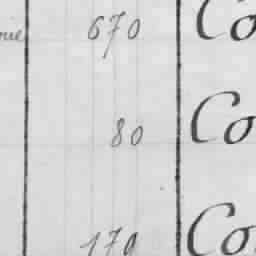 670 Co
80 Co
170 Co